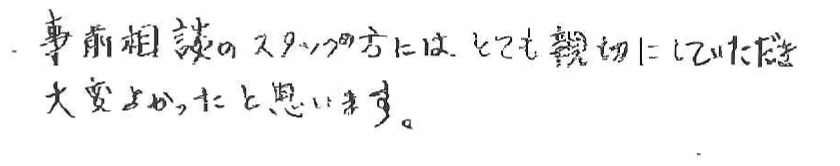 ・事前相談のスタッフの方には、とても親切にしていただき
大変よかったと思います。